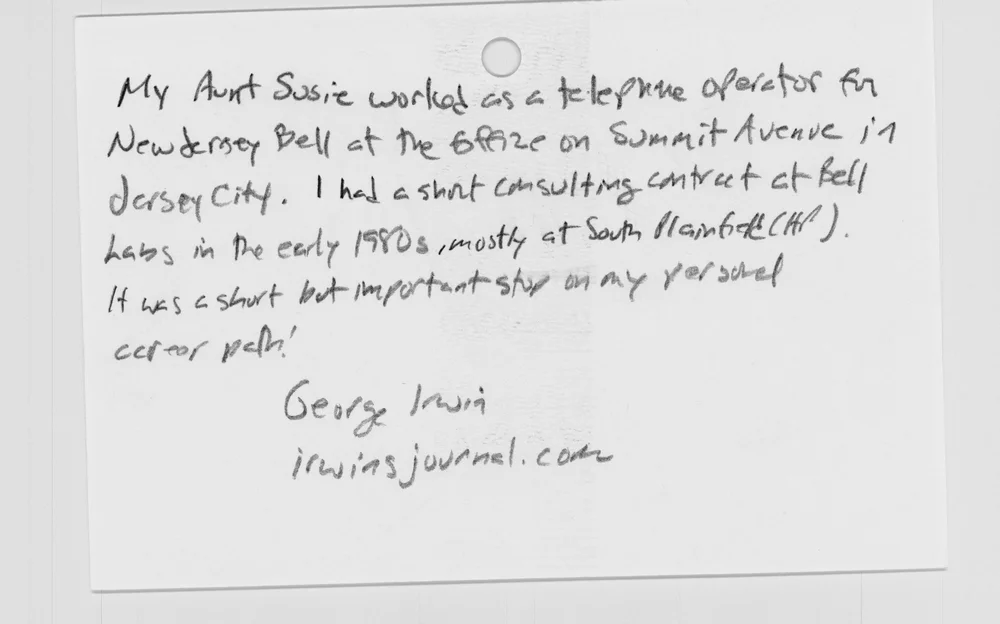 My Aunt Susie worked as a telephone operator for
New Jersey Bell at the office on Summit Avenue in
Jersey City. I had a short consulting contract at Bell
Labs in the early 1980s, mostly at South Plainfield (HP).
It was a short but important stop on my personal
career path!
George Irwin
irwinsjournal.com